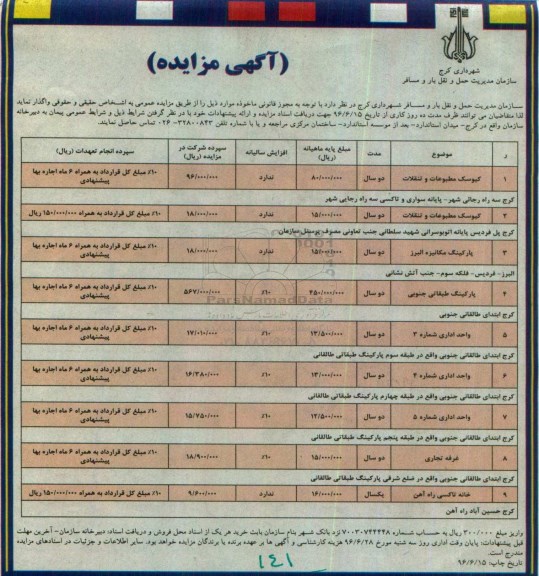 شهرداری کرج
سازمان مدیریت حمل و نقل بار و مسافر
(آگهی مزایده)
سازمان مدیریت حمل و نقل بار و مسافر شهرداری کرج در نظر دارد با توجه به مجوز قانونی ماخوذه موارد ذیل را از طریق مزایده عمومی به اشخاص حقیقی و حقوقی واگذار نماید
لذا متقاضیان می توانند ظرف مدت ده روز کاری از تاریخ ۹۶/۶/۱۵ جهت دریافت اسناد مزایده و ارائه پیشنهادات خود با در نظر گرفتن شرایط ذیل و شرایط عمومی پیمان به دبیرخانه
سازمان واقع در کرج- میدان استاندارد- بعد از موسسه استاندارد- ساختمان مرکزی مراجعه و یا با شماره تلفن ۳۲۸۰۰۸۴۲-۰۲۶ تماس حاصل نمایند.
ر موضوع مدت مبلغ پایه ماهیانه (ریال) افزایش سالیانه سپرده شرکت در مزایده (ریال) سپرده انجام تعهدات (ریال)
۱ کیوسک مطبوعات و تنقلات دو سال ۸۰/۰۰۰/۰۰۰ ندارد ۹۶/۰۰۰/۰۰۰ ۱۰٪ مبلغ کل قرارداد به همراه ۶ ماه اجاره بها پیشنهادی
کرج سه راه رجائی شهر- پایانه سواری و تاکسی سه راه رجایی شهر
۲ کیوسک مطبوعات و تنقلات دو سال ۱۵/۰۰۰/۰۰۰ ندارد ۱۸/۰۰۰/۰۰۰ ۱۰٪ مبلغ کل قرارداد به همراه ۱۵۰/۰۰۰/۰۰۰ ریال
کرج پل فردیس پایانه اتوبوسرانی شهید سلطانی جنب تعاونی مصرف پرسنل سازمان
۳ پارکینگ مکانیزه البرز دو سال ۱۵/۰۰۰/۰۰۰ ندارد ۱۸/۰۰۰/۰۰۰ ۱۰٪ مبلغ کل قرارداد به همراه ۶ ماه اجاره بها پیشنهادی
البرز- فردیس- فلکه سوم- جنب آتش نشانی
۴ پارکینگ طبقاتی جنوبی دو سال ۴۵۰/۰۰۰/۰۰۰ ۱۰٪ ۵۶۷/۰۰۰/۰۰۰ ۱۰٪ مبلغ کل قرارداد به همراه ۶ ماه اجاره بها پیشنهادی
کرج ابتدای طالقانی جنوبی
۵ واحد اداری شماره ۳ دو سال ۱۳/۵۰۰/۰۰۰ ۱۰٪ ۱۷/۰۱۰/۰۰۰ ۱۰٪ مبلغ کل قرارداد به همراه ۶ ماه اجاره بها پیشنهادی
کرج ابتدای طالقانی جنوبی واقع در طبقه سوم پارکینگ طبقاتی طالقانی
۶ واحد اداری شماره ۴ دو سال ۱۳/۰۰۰/۰۰۰ ۱۰٪ ۱۶/۳۸۰/۰۰۰ ۱۰٪ مبلغ کل قرارداد به همراه ۶ ماه اجاره بها پیشنهادی
کرج ابتدای طالقانی جنوبی واقع در طبقه چهارم پارکینگ طبقاتی طالقانی
۷ واحد اداری شماره ۵ دو سال ۱۲/۵۰۰/۰۰۰ ۱۰٪ ۱۵/۷۵۰/۰۰۰ ۱۰٪ مبلغ کل قرارداد به همراه ۶ ماه اجاره بها پیشنهادی
کرج ابتدای طالقانی جنوبی واقع در طبقه پنجم پارکینگ طبقاتی طالقانی
۸ غرفه تجاری دو سال ۱۵/۰۰۰/۰۰۰ ۱۰٪ ۱۸/۹۰۰/۰۰۰ ۱۰٪ مبلغ کل قرارداد به همراه ۶ ماه اجاره بها پیشنهادی
کرج ابتدای طالقانی جنوبی واقع در ضلع شرقی پارکینگ طبقاتی طالقانی
۹ خانه تاکسی راه آهن یکسال ۱۶/۰۰۰/۰۰۰ ندارد ۹/۶۰۰/۰۰۰ ۱۰٪ مبلغ کل قرارداد به همراه ۱۵۰/۰۰۰/۰۰۰ ریال
کرج حسین آباد راه آهن
واریز مبلغ ۳۰۰/۰۰۰ ریال به حساب شماره ۷۰۰۳۰۷۴۴۴۴۸ نزد بانک شهر بنام سازمان بابت خرید هر یک از اسناد محل فروش و دریافت اسناد: دبیر خانه سازمان- آخرین مهلت
قبل پیشنهادات: پایان وقت اداری روز سه شنبه مورخ ۹۶/۶/۲۸ هزینه کارشناسی و آگهی ها بر عهده برنده یا برندگان مزایده خواهد بود. سایر اطلاعات و جزئیات در اسنادهای مزایده
مندرج است.
تاریخ چاپ: ۹۶/۶/۱۵
۱۴۱
ParsNamadData